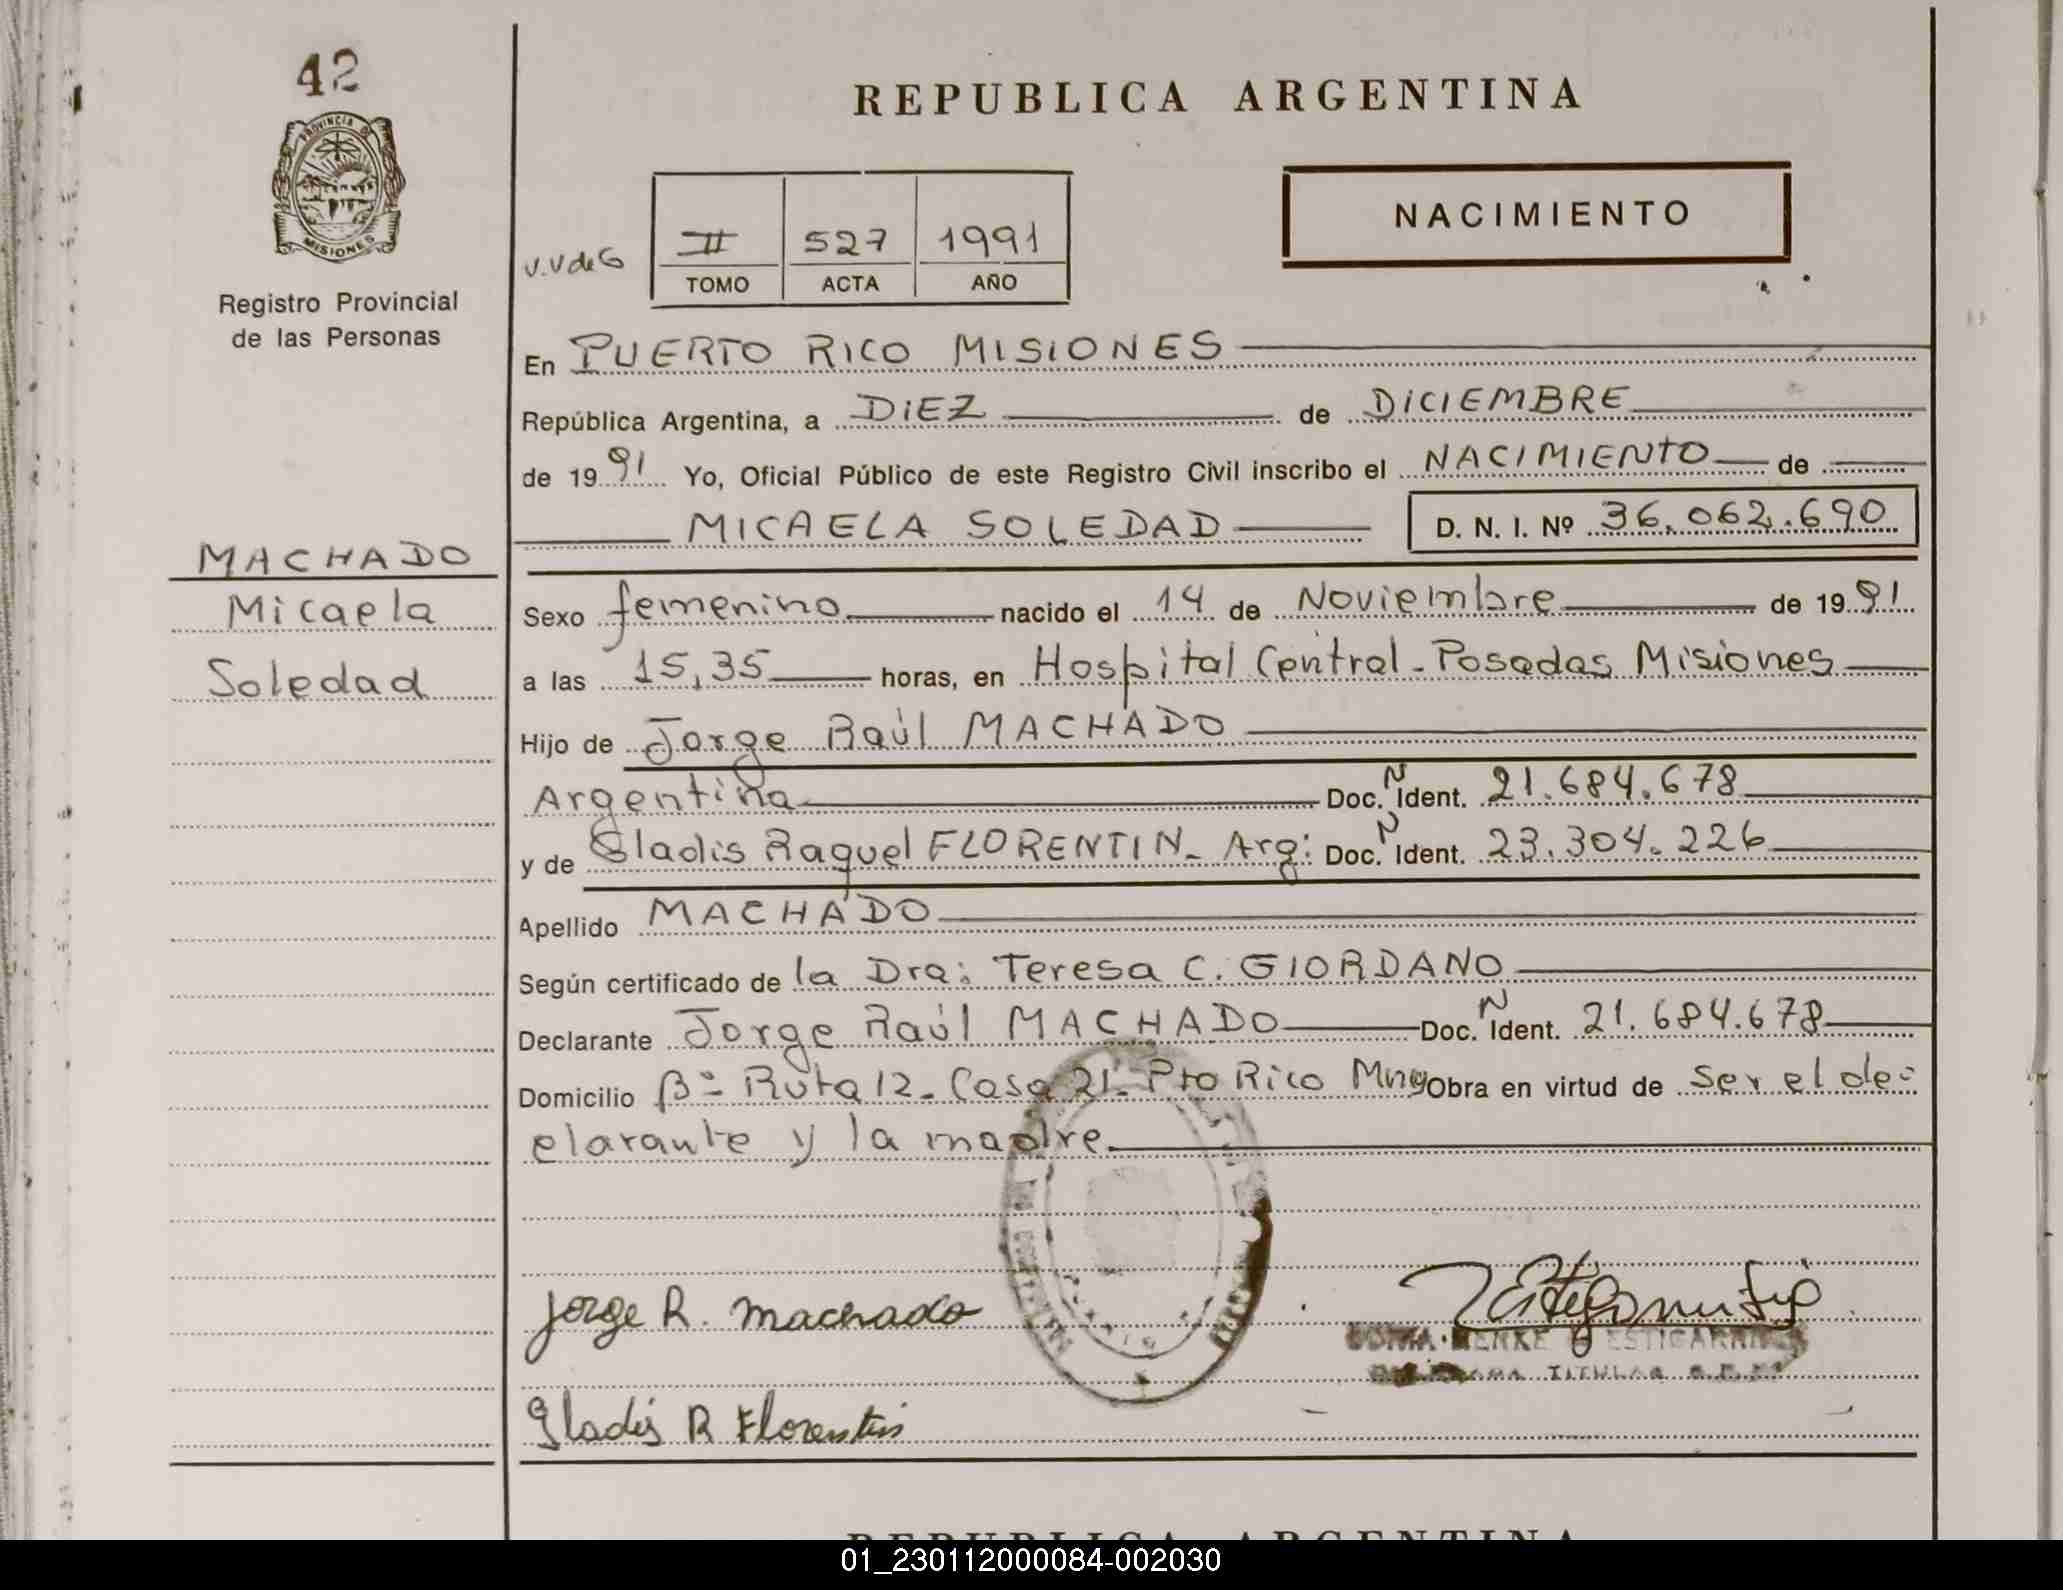 42
PROVINCIA DE
MISIONES
Registro Provincial
de las Personas
MACHADO
Micaela
Soledad
REPUBLICA ARGENTINA
NACIMIENTO
V.V de G
II 527 1991
TOMO ACTA AÑO
En PUERTO RICO MISIONES
República Argentina, a DIEZ de DICIEMBRE
de 1991 Yo, Oficial Público de este Registro Civil inscribo el NACIMIENTO de
MICAELA SOLEDAD D. N. I. Nº 36.062.690
Sexo femenino nacido el 14 de Noviembre de 1991
a las 15,35 horas, en Hospital Central - Posadas Misiones
Hijo de Jorge Raúl MACHADO
Argentina Doc. N Ident. 21.684.678
y de Gladis Raquel FLORENTIN - Arg: Doc. N Ident. 23.304.226
Apellido MACHADO
Según certificado de la Dra: Teresa C. GIORDANO
Declarante Jorge Raúl MACHADO Doc. N Ident. 21.684.678
Domicilio Bº Ruta 12 - Casa 21 - Pto Rico Mnes Obra en virtud de Ser el de-
clarante y la madre
Jorge R. Machado
ESTIGARRIBIA
TITULAR
Gladis R Florentin
REPUBLICA ARGENTINA
01_230112000084-002030